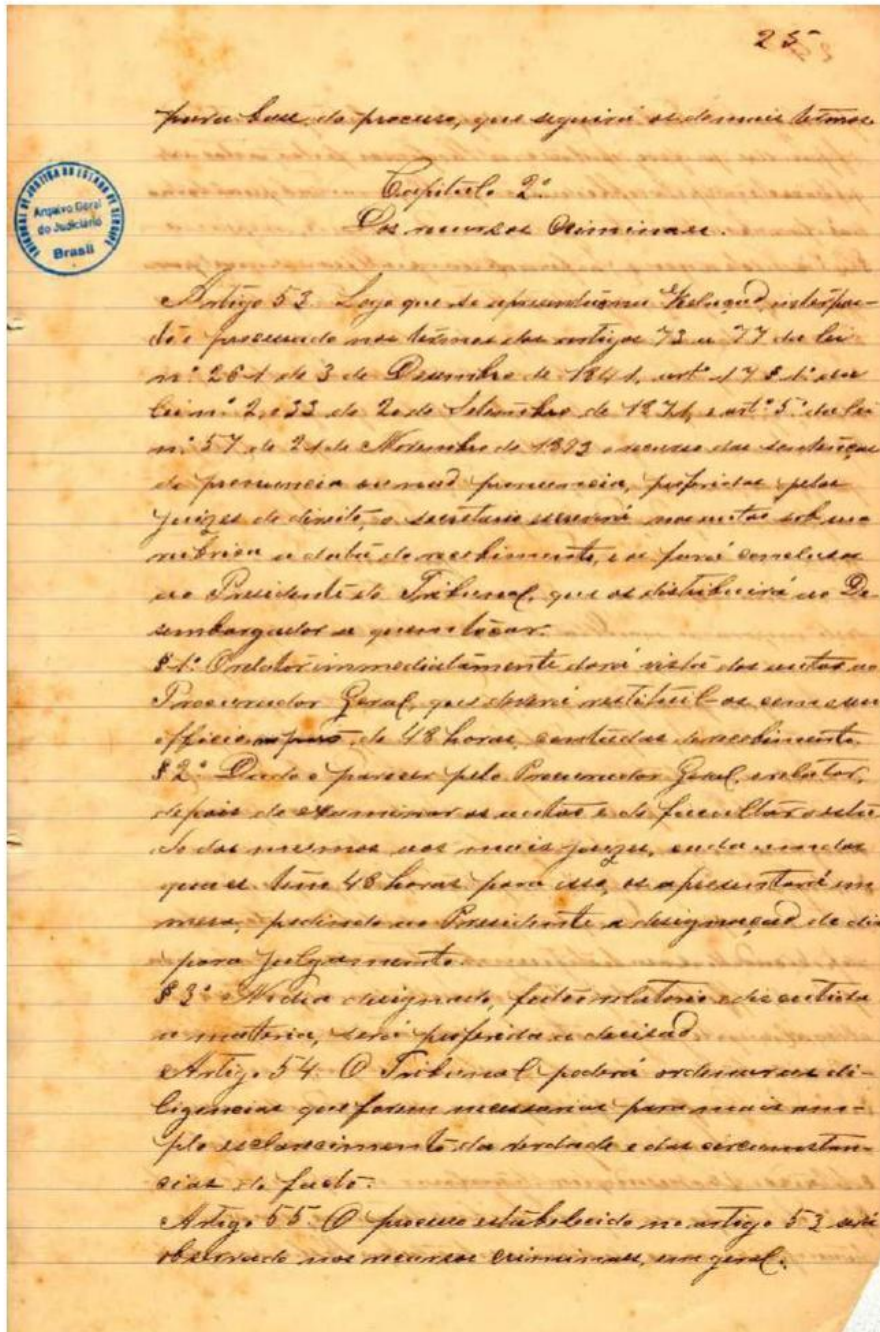 25
para base do processo, que seguirá os demais termos.
TRIBUNAL DE JUSTIÇA DO ESTADO DE SERGIPE
Arquivo Geral
do Judiciário
Brasil
Capitulo 2º
Dos recursos Criminaes.
Artigo 53. Logo que se apresentar na Relaçaõ, interpos-
to e processado nos termos dos artigos 73 a 77 da lei
nº 261 de 3 de Desembro de 1841, artº 17 § 1º da
lei nº 2,033 de 20 de Setembro de 1871, e artº 5º da lei
nº 57 de 21 de Novembro de 1893 o recurso das sentenças
de pronuncia ou naõ pronuncia, proferidas pelos
juizes de direito, o secretario escreverá nos autos sob sua
rubrica a data do recebimento, e os fará conclusos
ao Presidente do Tribunal, que os distribuirá ao De-
sembargador a quem tocar.
§ 1º O relator immediatamente dará vista dos autos ao
Procurador Geral, que deverá restituil-os com seu
officio de 48 horas, contadas do recebimento.
§ 2º Dado o parecer pelo Procurador Geral, o relator,
depois de examinar os autos e de facultar o estu-
do dos mesmos aos mais juizes, cada um dos
quaes terá 48 horas para isso, os apresentará em
mesa, pedindo ao Presidente a designaçaõ de dia
para julgamento.
§ 3º No dia designado, feito o relatorio e discutida
a materia, será proferida a decisaõ
Artigo 54. O Tribunal poderá ordenar as di-
ligencias que forem necessarias para mais am-
plo esclarecimento da verdade e das circumstan-
cias do facto.
Artigo 55. O processo estabelecido no artigo 53 será
observado nos recursos criminaes, em geral.